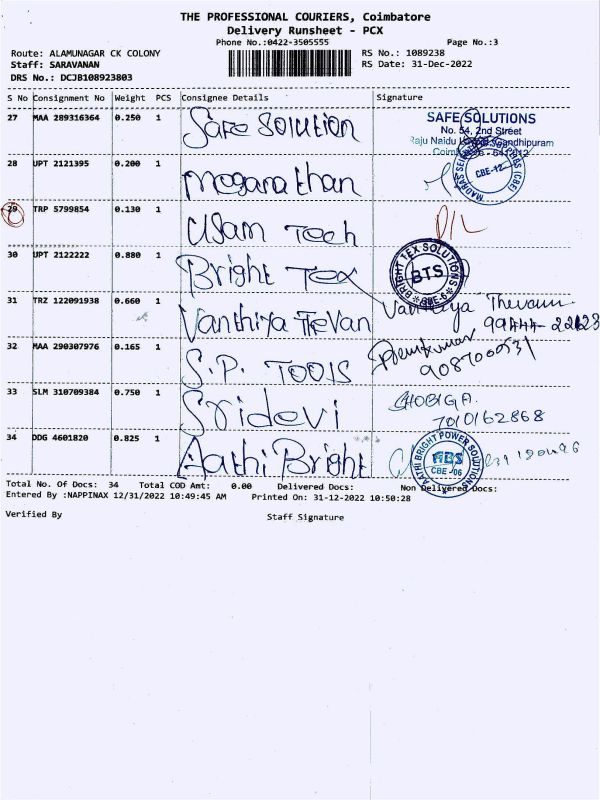 THE PROFESSIONAL COURIERS, Coimbatore
Delivery Runsheet - PCX
Phone No.:0422-3505555 Page No.:3
Route: ALAMUNAGAR CK COLONY RS No.: 1089238
Staff: SARAVANAN RS Date: 31-Dec-2022
DRS No.: DCJB108923803
S No Consignment No Weight PCS Consignee Details Signature
27 MAA 289316364 0.250 1 Safe Solution SAFE SOLUTIONS
No. 54, 2nd Street
28 UPT 2121395 0.200 1 Moganathan CBE-12
29 TRP 5799854 0.130 1 Usam Tech D/L
30 UPT 2122222 0.880 1 Bright Tex BRIGHT TEX SOLUTIONS BTS CBE-6
31 TRZ 122091938 0.660 1 Vanthiya Thevan
32 MAA 290307976 0.165 1 S.P. Tools
33 SLM 310709384 0.750 1 Sridevi SHOBIGA.
7010162868
34 DDG 4601820 0.825 1 Aathi Bright AATHI BRIGHT POWER SOLUTIONS ABS CBE-06
Total No. Of Docs: 34 Total COD Amt: 0.00 Delivered Docs: Non Delivered Docs:
Entered By :NAPPINAX 12/31/2022 10:49:45 AM Printed On: 31-12-2022 10:50:28
Verified By Staff Signature